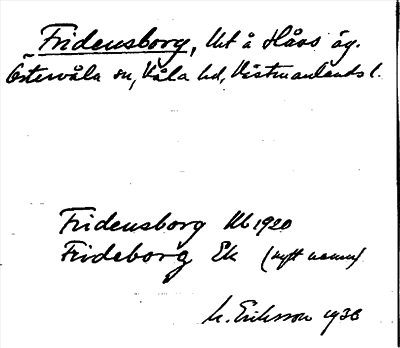 Fridensborg, Ut å Håss äg.
Östervåla sn, Våla hd, Västmanlands l.
Fridensborg Ub 1920
Frideborg Ek (nytt namn)
M. Eriksson 1936